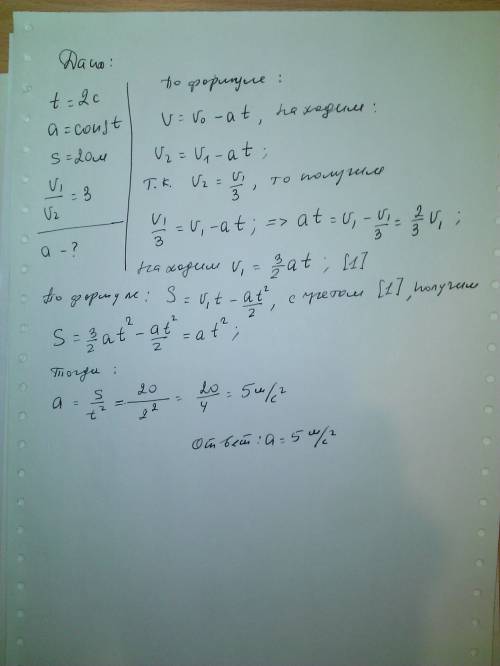 Дано:
t = 2с
a = const
S = 20м
V₁/V₂ = 3
a - ?
По формуле:
V = V₀ - at, находим:
V₂ = V₁ - at;
Т.к. V₂ = V₁/3, то получим
V₁/3 = V₁ - at; => at = V₁ - V₁/3 = 2/3 V₁;
Находим V₁ = 3/2 at; [1]
По формуле: S = V₁t - at²/2, с учетом [1], получим
S = 3/2 at² - at²/2 = at²;
Тогда:
a = S/t² = 20/2² = 20/4 = 5 м/с²
Ответ: a = 5 м/с²